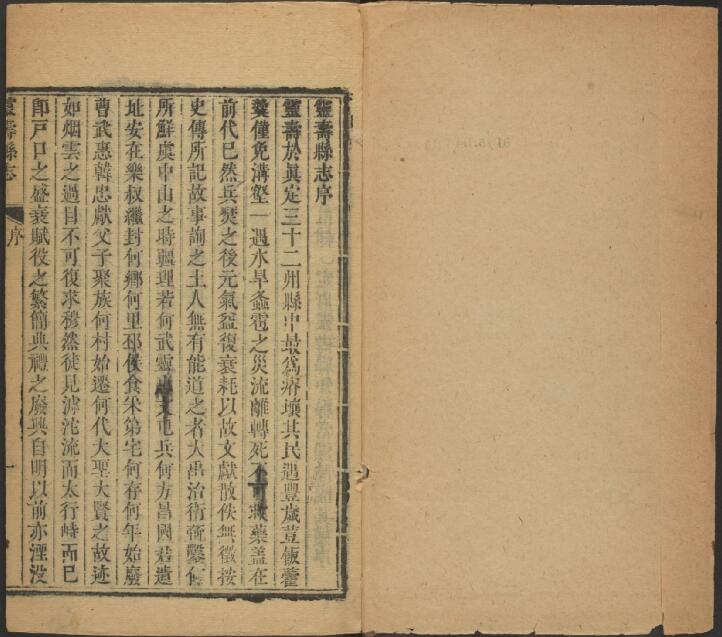 靈壽縣志序
靈壽於眞定三十二州縣中最爲瘠壤其民遇豐歲荳飯藿
羹僅免溝壑一遇水旱螽雹之災流離轉死不可救藥蓋在
前代已然兵燹之後元氣益復衰耗以故文獻散佚無徵按
史傳所記故事詢之土人無有能道之者大禹治衛衛鑿何
所鮮虞中山之時疆理若何武靈屯兵何方昌國君遺
址安在樂叔繼封何鄉何里邳侯食采第宅何存何年始廢
曹武惠韓忠獻父子聚族何村始遷何代大聖大賢之故迹
如烟雲之過目不可復求穆然徒見滹沱流而太行峙而已
卽戸口之盛衰賦役之繁簡典禮之廢興自明以前亦湮没
靈壽縣志
序
一